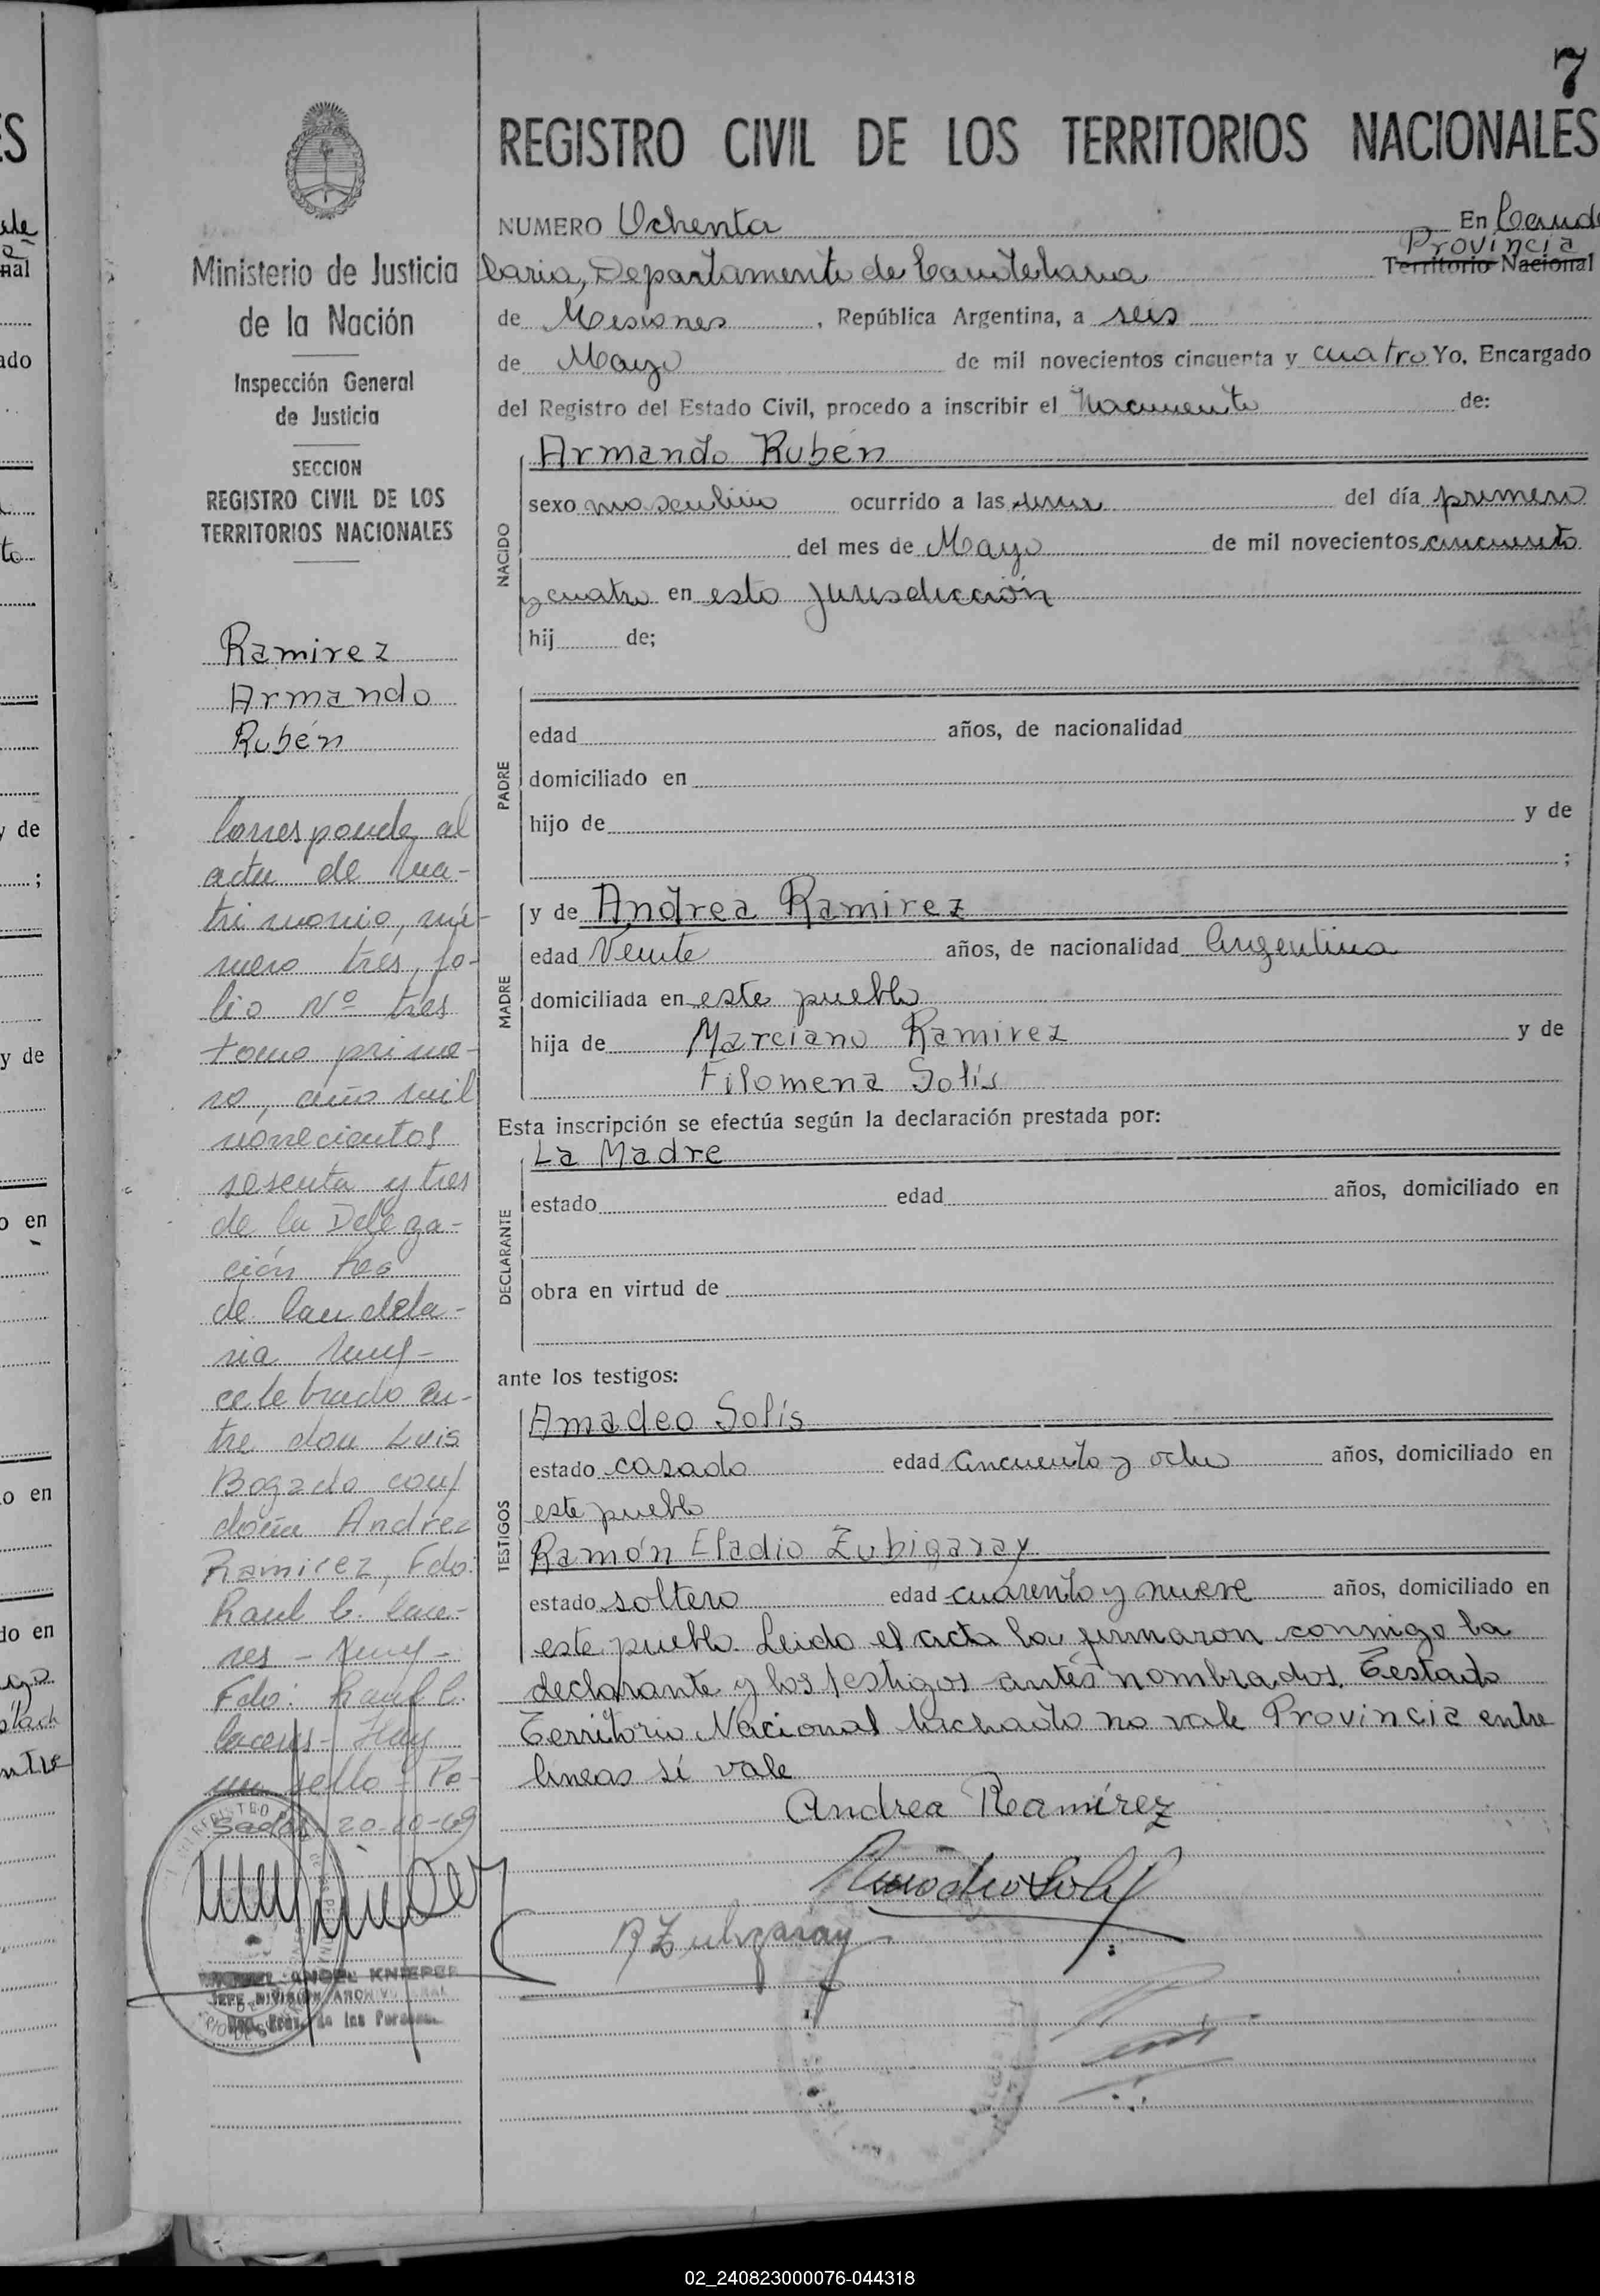 7
REGISTRO CIVIL DE LOS TERRITORIOS NACIONALES
NUMERO Ochenta En Cande
Provincia
laria, Departamento de Candelaria Territorio Nacional
de Misiones, República Argentina, a seis
de Mayo de mil novecientos cincuenta y cuatro Yo, Encargado
del Registro del Estado Civil, procedo a inscribir el Nacimiento de:
NACIDO
Armando Rubén
sexo masculino ocurrido a las una del día primero
del mes de Mayo de mil novecientos cincuenta
y cuatro en esta jurisdicción
hij de;
PADRE
edad años, de nacionalidad
domiciliado en
hijo de y de
;
MADRE
y de Andrea Ramirez
edad Veinte años, de nacionalidad Argentina
domiciliada en este pueblo
hija de Marciano Ramirez y de
Filomena Solís
Esta inscripción se efectúa según la declaración prestada por:
DECLARANTE
La Madre
estado edad años, domiciliado en
obra en virtud de
ante los testigos:
TESTIGOS
Amadeo Solís
estado casado edad cincuenta y ocho años, domiciliado en
este pueblo
Ramón Eladio Zubigaray
estado soltero edad cuarenta y nueve años, domiciliado en
este pueblo. Leida el acta la firmaron conmigo la
declarante y los testigos antes nombrados. Testado
Territorio Nacional tachado no vale Provincia entre
lineas sí vale
Andrea Ramírez
Amadeo Solis
R Zubigaray
Ministerio de Justicia
de la Nación
Inspección General
de Justicia
SECCION
REGISTRO CIVIL DE LOS
TERRITORIOS NACIONALES
Ramirez
Armando
Rubén
Corresponde al
acta de ma-
trimonio, nú-
mero tres, fo-
lio Nº tres
tomo prime-
ro, año mil
novecientos
sesenta y tres
de la Delega-
ción
de Candela-
ria
celebrado en-
tre don Luis
Bogado con
doña Andrea
Ramirez, Fdo:
Raul C.
Fdo: Raul C.
Hay
un sello - Po-
sadas 20-10-69
ANGEL KNIEPER
JEFE DIVISION ARCHIVO
de las Personas
02_240823000076-044318